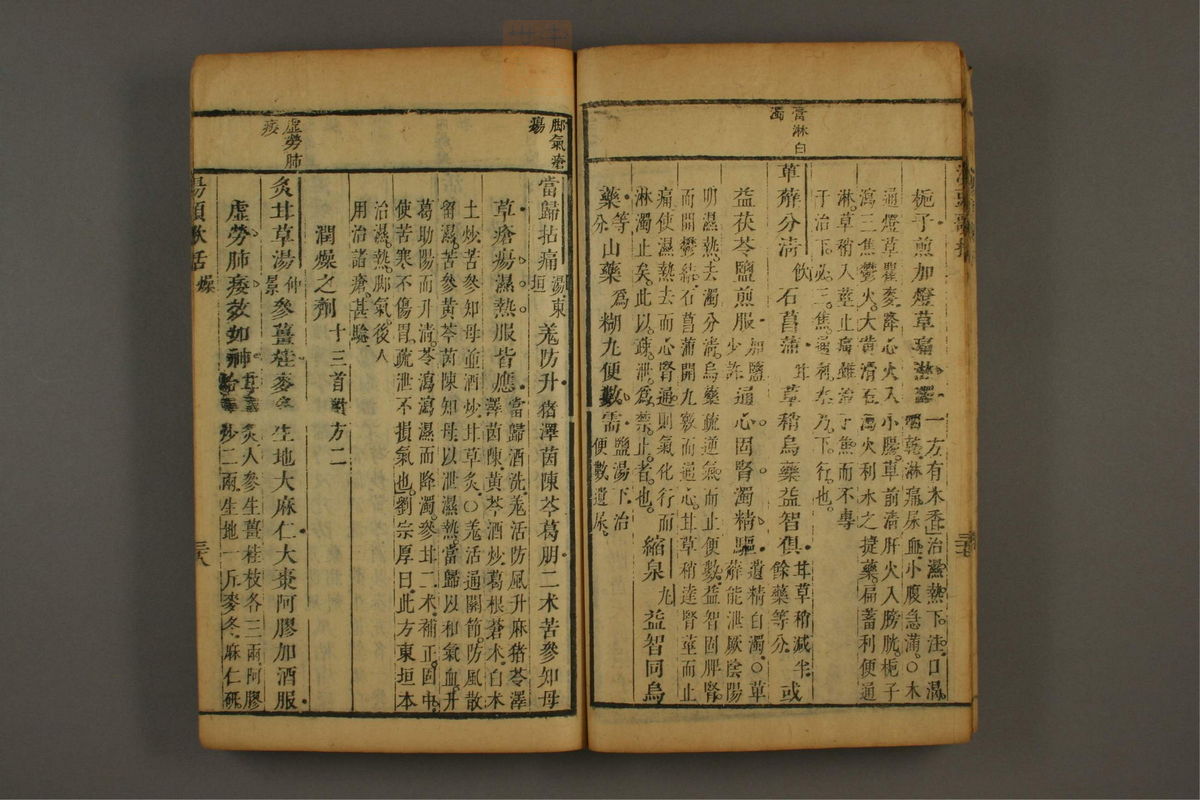 梔子煎加燈草痛淋 一方有木香 治濕熱下注口渴
咽乾淋痛尿血小腹急滿○木
通燈草瞿麥降心火入小腸草前清肝火入膀胱梔子
瀉三焦鬱火大黃滑石瀉火利水之捷藥萹蓄利便通
淋草稍入莖止痛雖治下焦而不專
于治下必三焦通利水乃下行也
膏淋白
濁
萆薢分清飲石菖蒲 草稍烏藥益智俱 甘草稍減半
餘藥等分 或
益茯苓鹽煎服 加鹽
少許 通心固腎濁精驅 遺精白濁○萆
薢能泄厥陰陽
明濕熱去濁分清烏藥疏逆氣而止便數益智固脾腎
而開鬱結石菖蒲開九竅而通心甘草稍達腎莖而止
痛使濕熱去而心腎通則氣化行而
淋濁止矣此以疏泄為禁止者也 縮泉丸 益智同烏
藥等
分 山藥為糊丸便數需 鹽湯下治
便數遺尿
脚氣瘡
瘍
當歸拈痛湯東
垣 羌防升 豬澤茵陳芩葛朋二朮苦參知母
草瘡瘍濕熱服皆應 當歸酒洗羌活防風升麻豬苓澤
瀉茵陳黃芩酒炒葛根蒼朮白朮
土炒苦參知母並酒炒甘草炙○羌活通關節防風散
留濕苦參黃芩茵陳知母以泄濕熱當歸以和氣血升
葛助陽而升清芩瀉瀉濕而降濁參甘二朮補正固中
使苦寒不傷胃疏泄不損氣也劉宗厚曰此方東垣本
治濕熱脚氣後人
用治諸瘡甚驗
潤燥之劑 十三首附方二
虛勞肺
痿
炙甘草湯仲
景 參薑桂麥冬生地大麻仁大棗阿膠加酒服
虛勞肺痿效如神 甘草炙人參生薑桂枝各三兩阿膠
蛤粉炒二兩生地一斤麥冬麻仁研
湯頭歌括 燥 三六